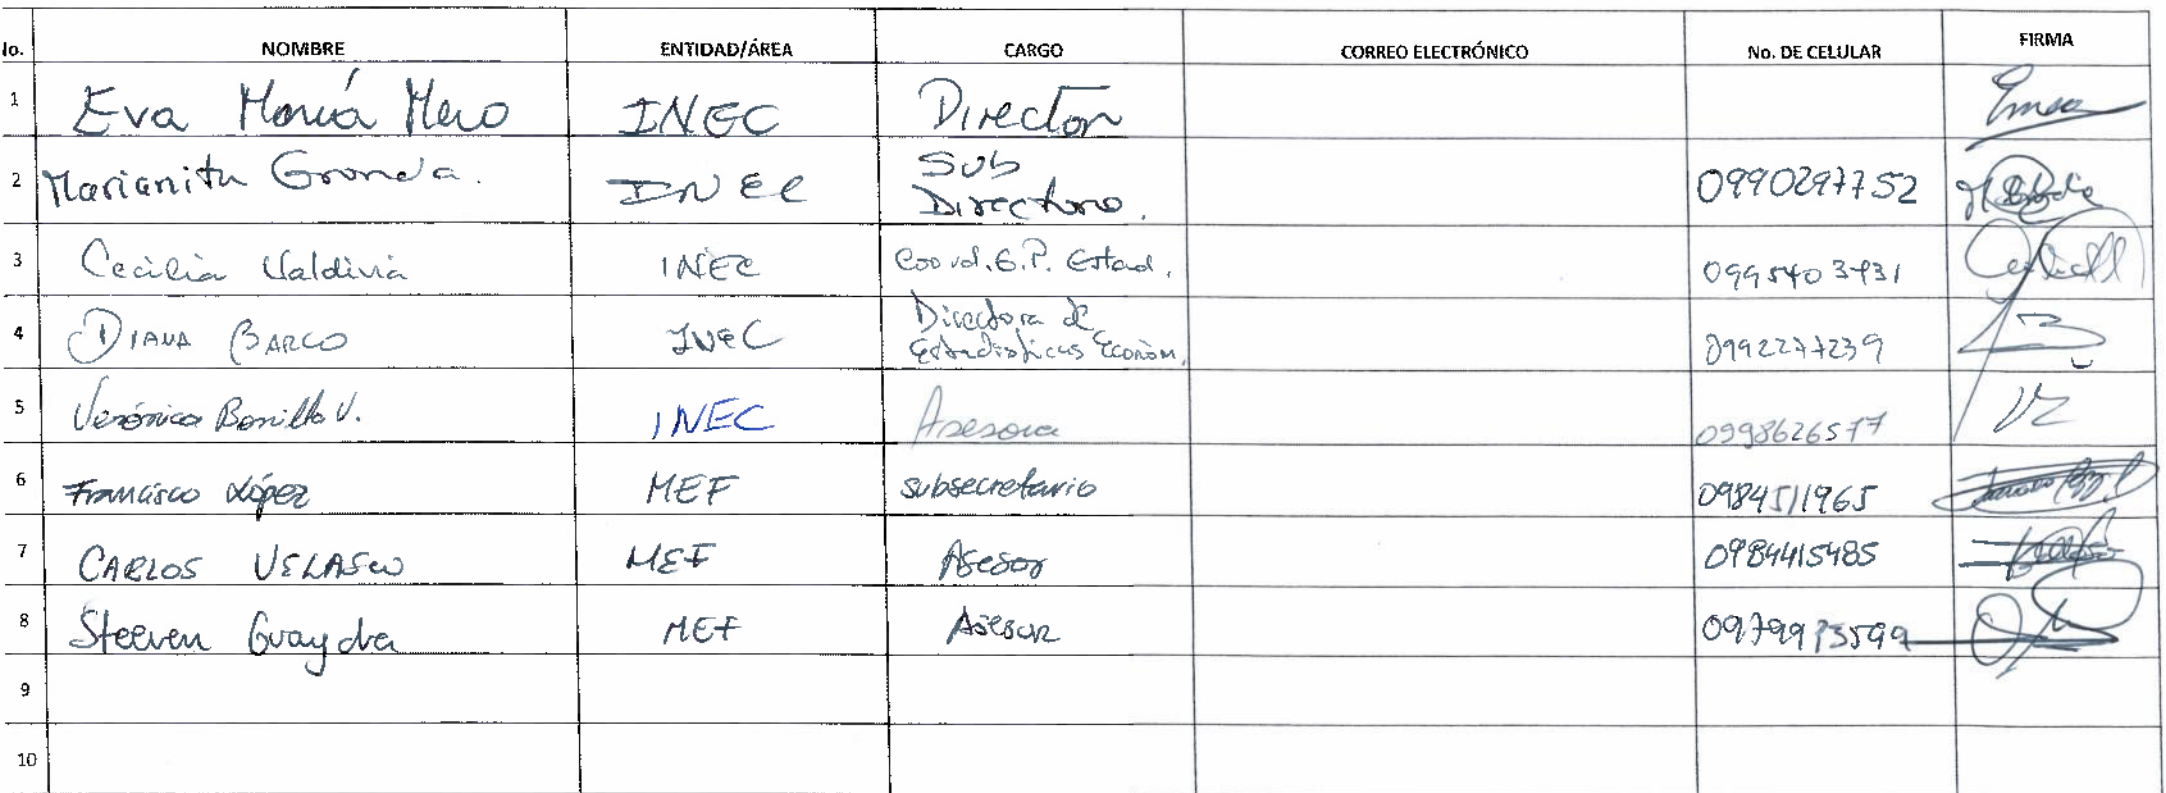 No. NOMBRE ENTIDAD/ÁREA CARGO CORREO ELECTRÓNICO No. DE CELULAR FIRMA
1 Eva María Mero INEC Director
2 Marianita Granda. INEC Sub Directora. 0990297752
3 Cecilia Valdivia INEC Coord. G.P. Estad. 0995403931
4 DIANA BARCO INEC Directora de Estadísticas Económ. 0992277239
5 Verónica Bonilla V. INEC Asesora 0998626577
6 Francisco López MEF subsecretario 0984511965
7 CARLOS VELASCO MEF Asesor 0984415485
8 Steeven MEF Asesor
9
10